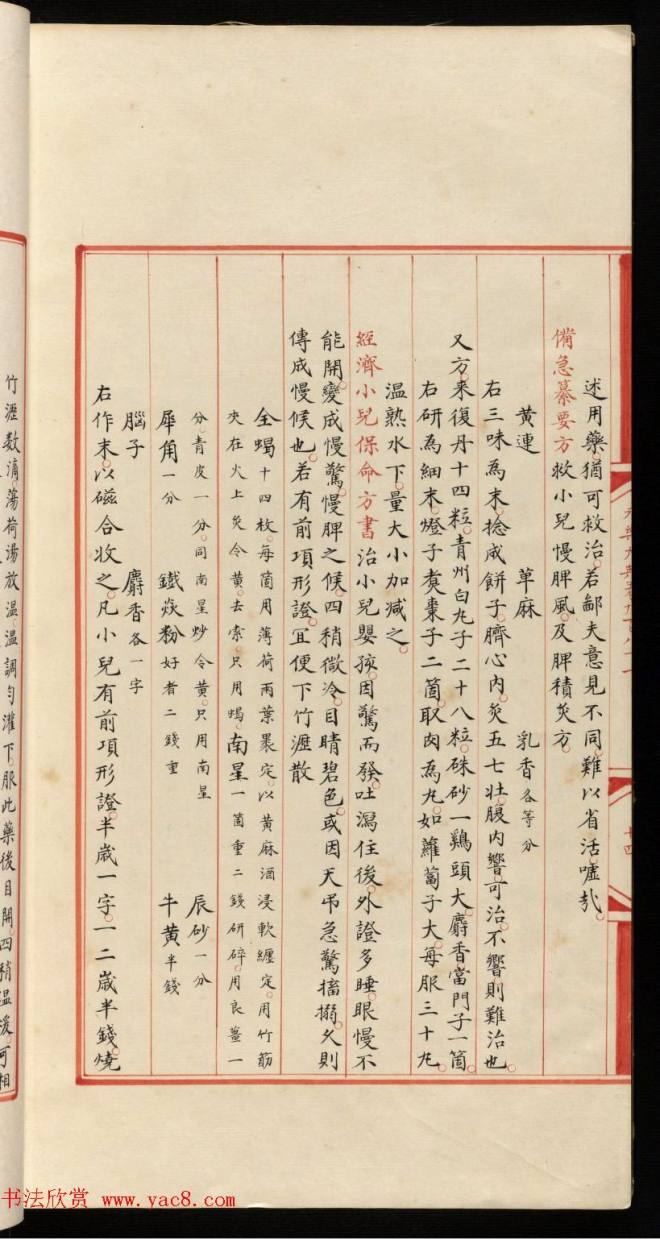 述用藥猶可救治若鄙夫意見不同難以省活噓哉
備急纂要方救小兒慢脾風及脾積灸方
黃連 草麻 乳香各等分
右三味為末捻成餅子臍心內灸五七壯腹內響可治不響則難治也
又方來復丹十四粒青州白丸子二十八粒硃砂一鷄頭大麝香當門子一箇
右研為細末燈子煑棗子二箇取肉為丸如蘿蔔子大每服三十丸
溫熱水下量大小加減之
經濟小兒保命方書治小兒嬰孩因驚而發吐瀉住後外證多睡眼慢不
能開變成慢驚慢脾之候四稍微冷目睛碧色或因天吊急驚搐搦久則
傳成慢候也若有前項形證宜便下竹瀝散
全蝎十四枚每箇用薄荷兩葉裹定以黃麻酒浸軟纏定用竹筯
夾在火上炙令黃去索只用蝎南星一箇重二錢研碎用良薑一
分青皮一分同南星炒令黃只用南星 辰砂一分
犀角一分 鐵焱粉好者二錢重 牛黃半錢
腦子 麝香各一字
右作末以磁合收之凡小兒有前項形證半歲一字一二歲半錢燒
竹瀝数滴蕩荷湯放溫溫調勻灌下服此藥後目開四稍溫煖可相
十四
书法欣赏 www.yac8.com